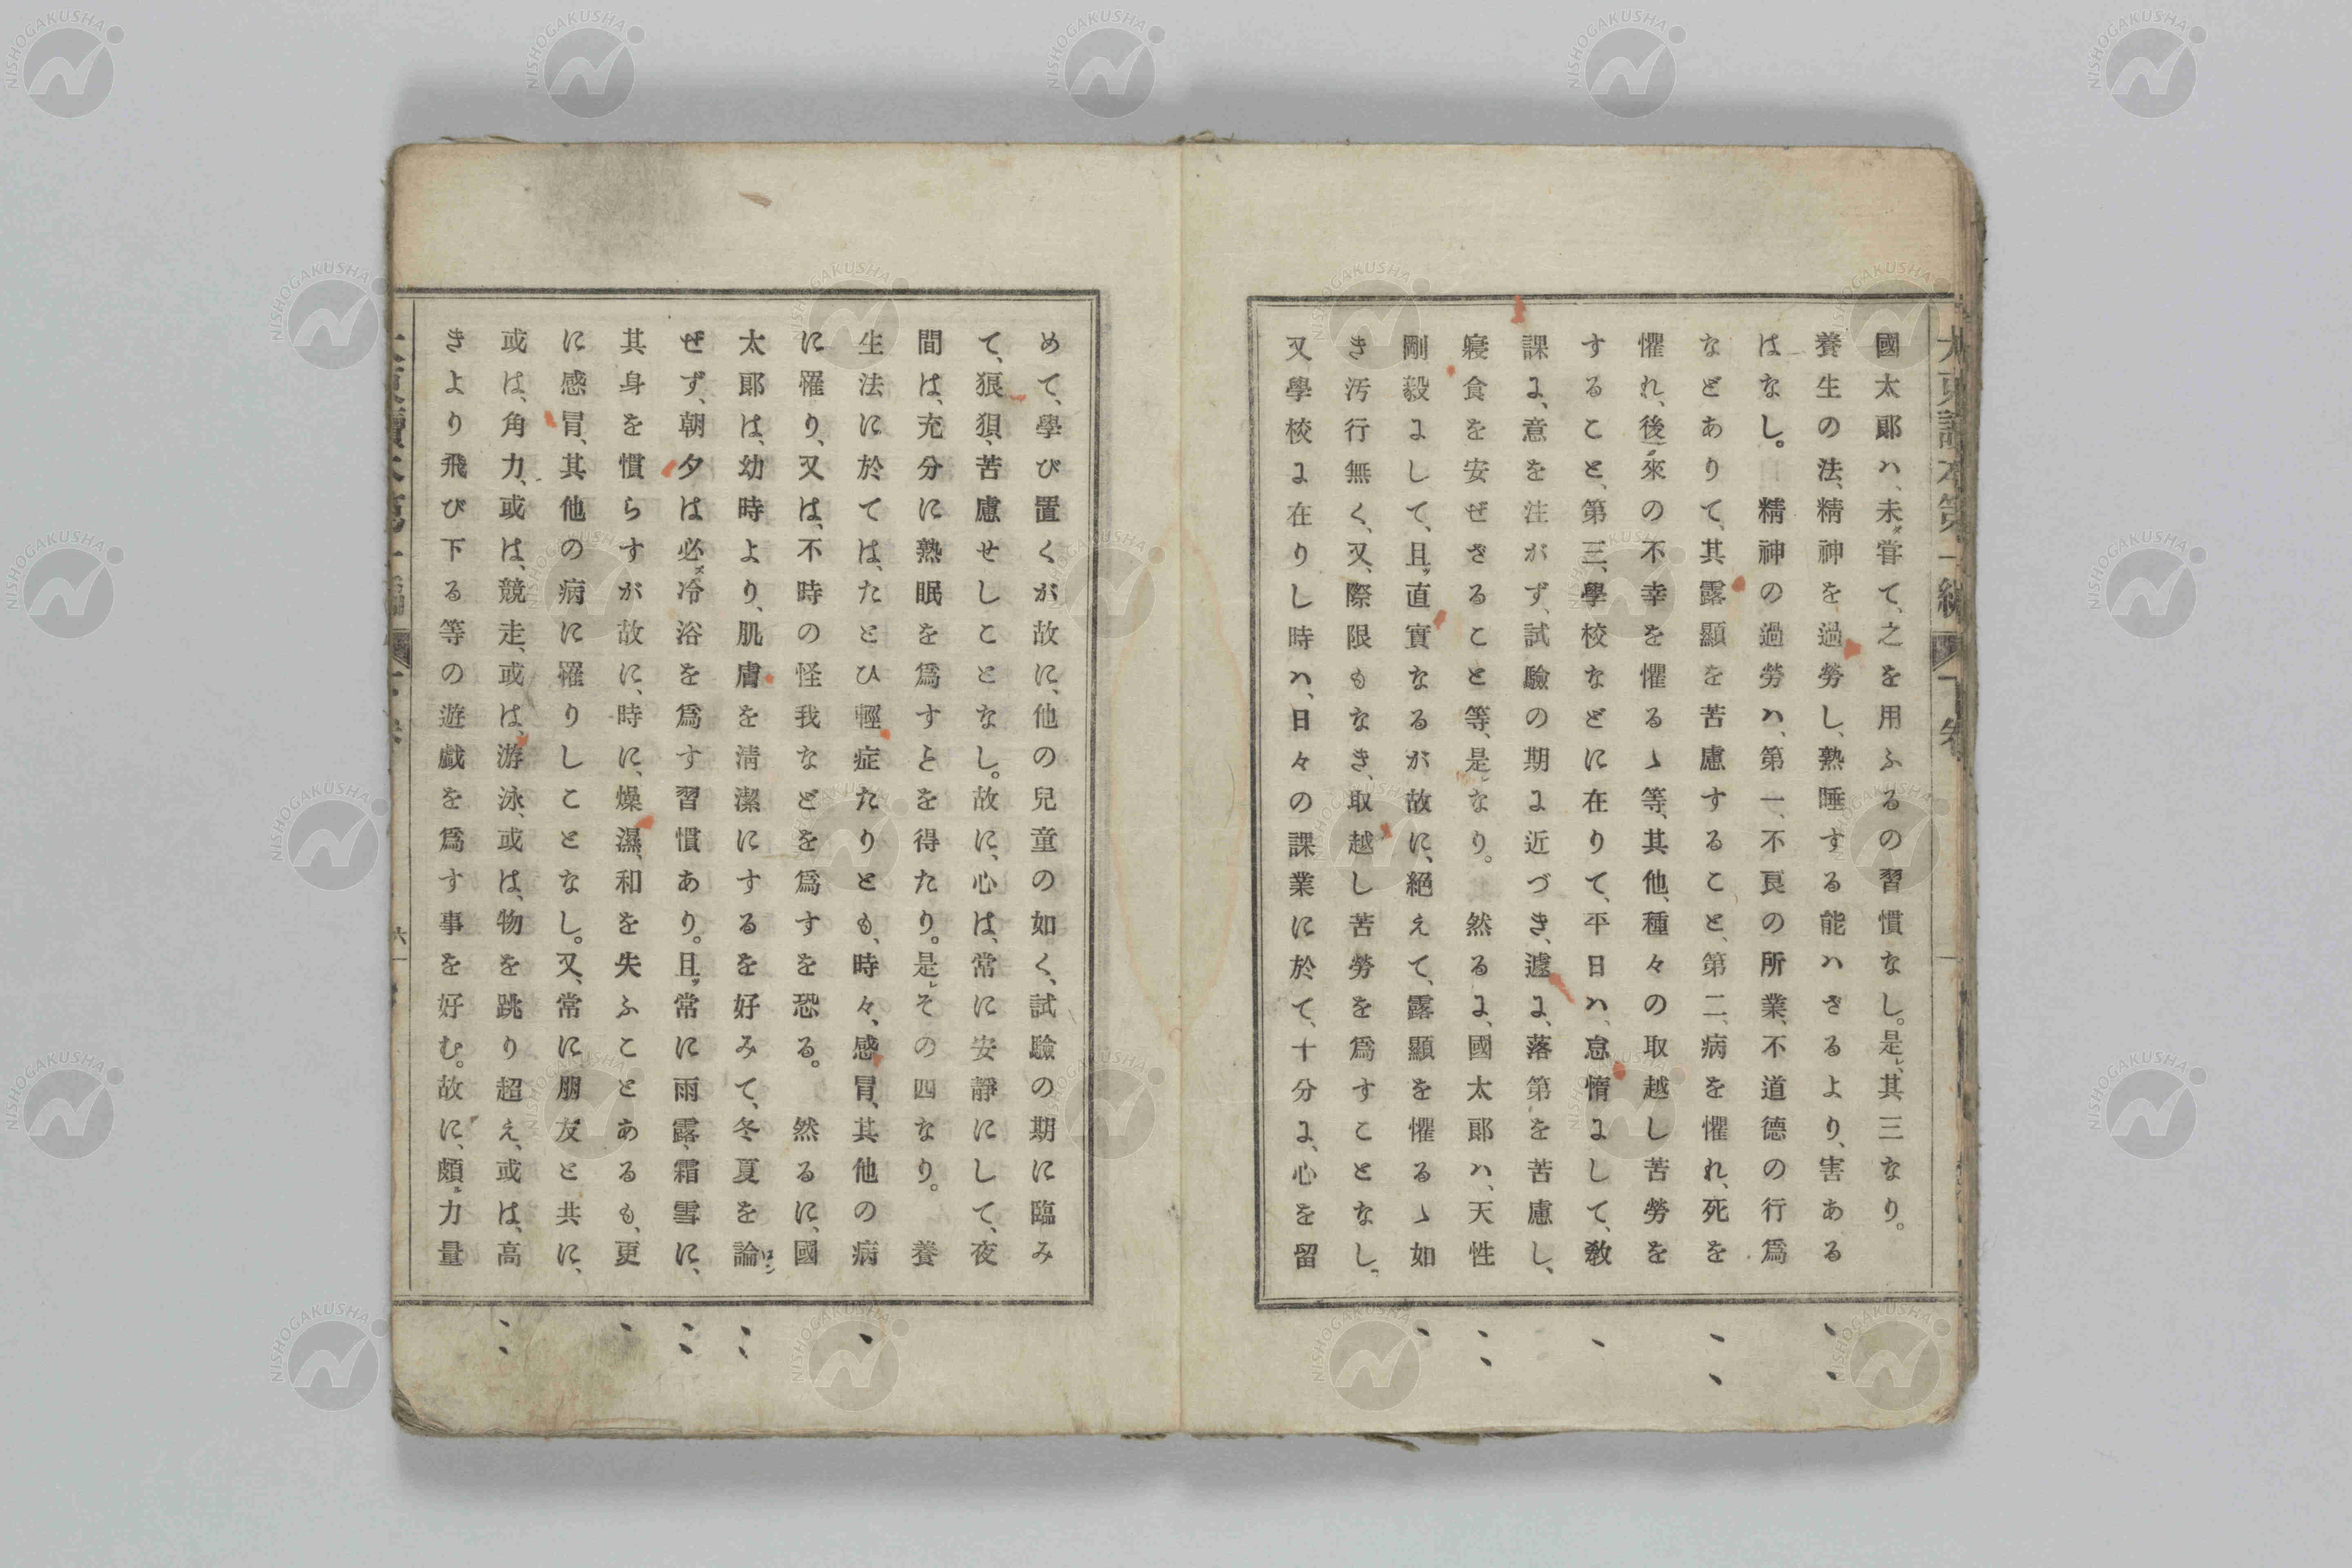 國太郞ハ、未ダ甞て、之を用ふるの習慣なし。是レ、其三なり。
養生の法、精神を過勞し、熟睡する能ハざるより、害ある
はなし。精神の過勞ハ、第一、不良の所業、不道德の行爲
などありて、其露顯を苦慮すること、第二、病を懼れ、死を
懼れ、後來の不幸を懼るゝ等、其他、種々の取越し苦勞を
すること、第三、學校などに在りて、平日ハ、怠惰にして、敎
課に、意を注がず、試驗の期に近づき、遽に、落第を苦慮し、
寢食を安ぜざること等、是レなり。然るに、國太郞ハ、天性
剛毅にして、且ツ直實なるが故に、絕えて、露顯を懼るゝ如
き汚行無く、又、際限もなき、取越し苦勞を爲すことなし。
又學校に在りし時ハ、日々の課業に於て、十分に、心を留
めて、學び置くが故に、他の兒童の如く、試驗の期に臨み
て、狼狽、苦慮せしことなし。故に、心は、常に安靜にして、夜
間は、充分に熟眠を爲すとを得たり。是レその四なり。養
生法に於ては、たとひ輕症たりとも、時々、感冒、其他の病
に罹り、又は、不時の怪我などを爲すを恐る。然るに、國
太郞は、幼時より、肌膚を淸潔にするを好みて、冬夏を論
ぜず、朝夕は必ズ冷浴を爲す習慣あり。且ツ常に雨露、霜雪に、
其身を慣らすが故に、時に、燥濕、和を失ふことあるも、更
に感冒、其他の病に罹りしことなし。又、常に朋友と共に、
或は、角力、或は、競走、或は、游泳、或は、物を跳り超え、或は、高
きより飛び下る等の遊戲を爲す事を好む。故に、頗ル力量